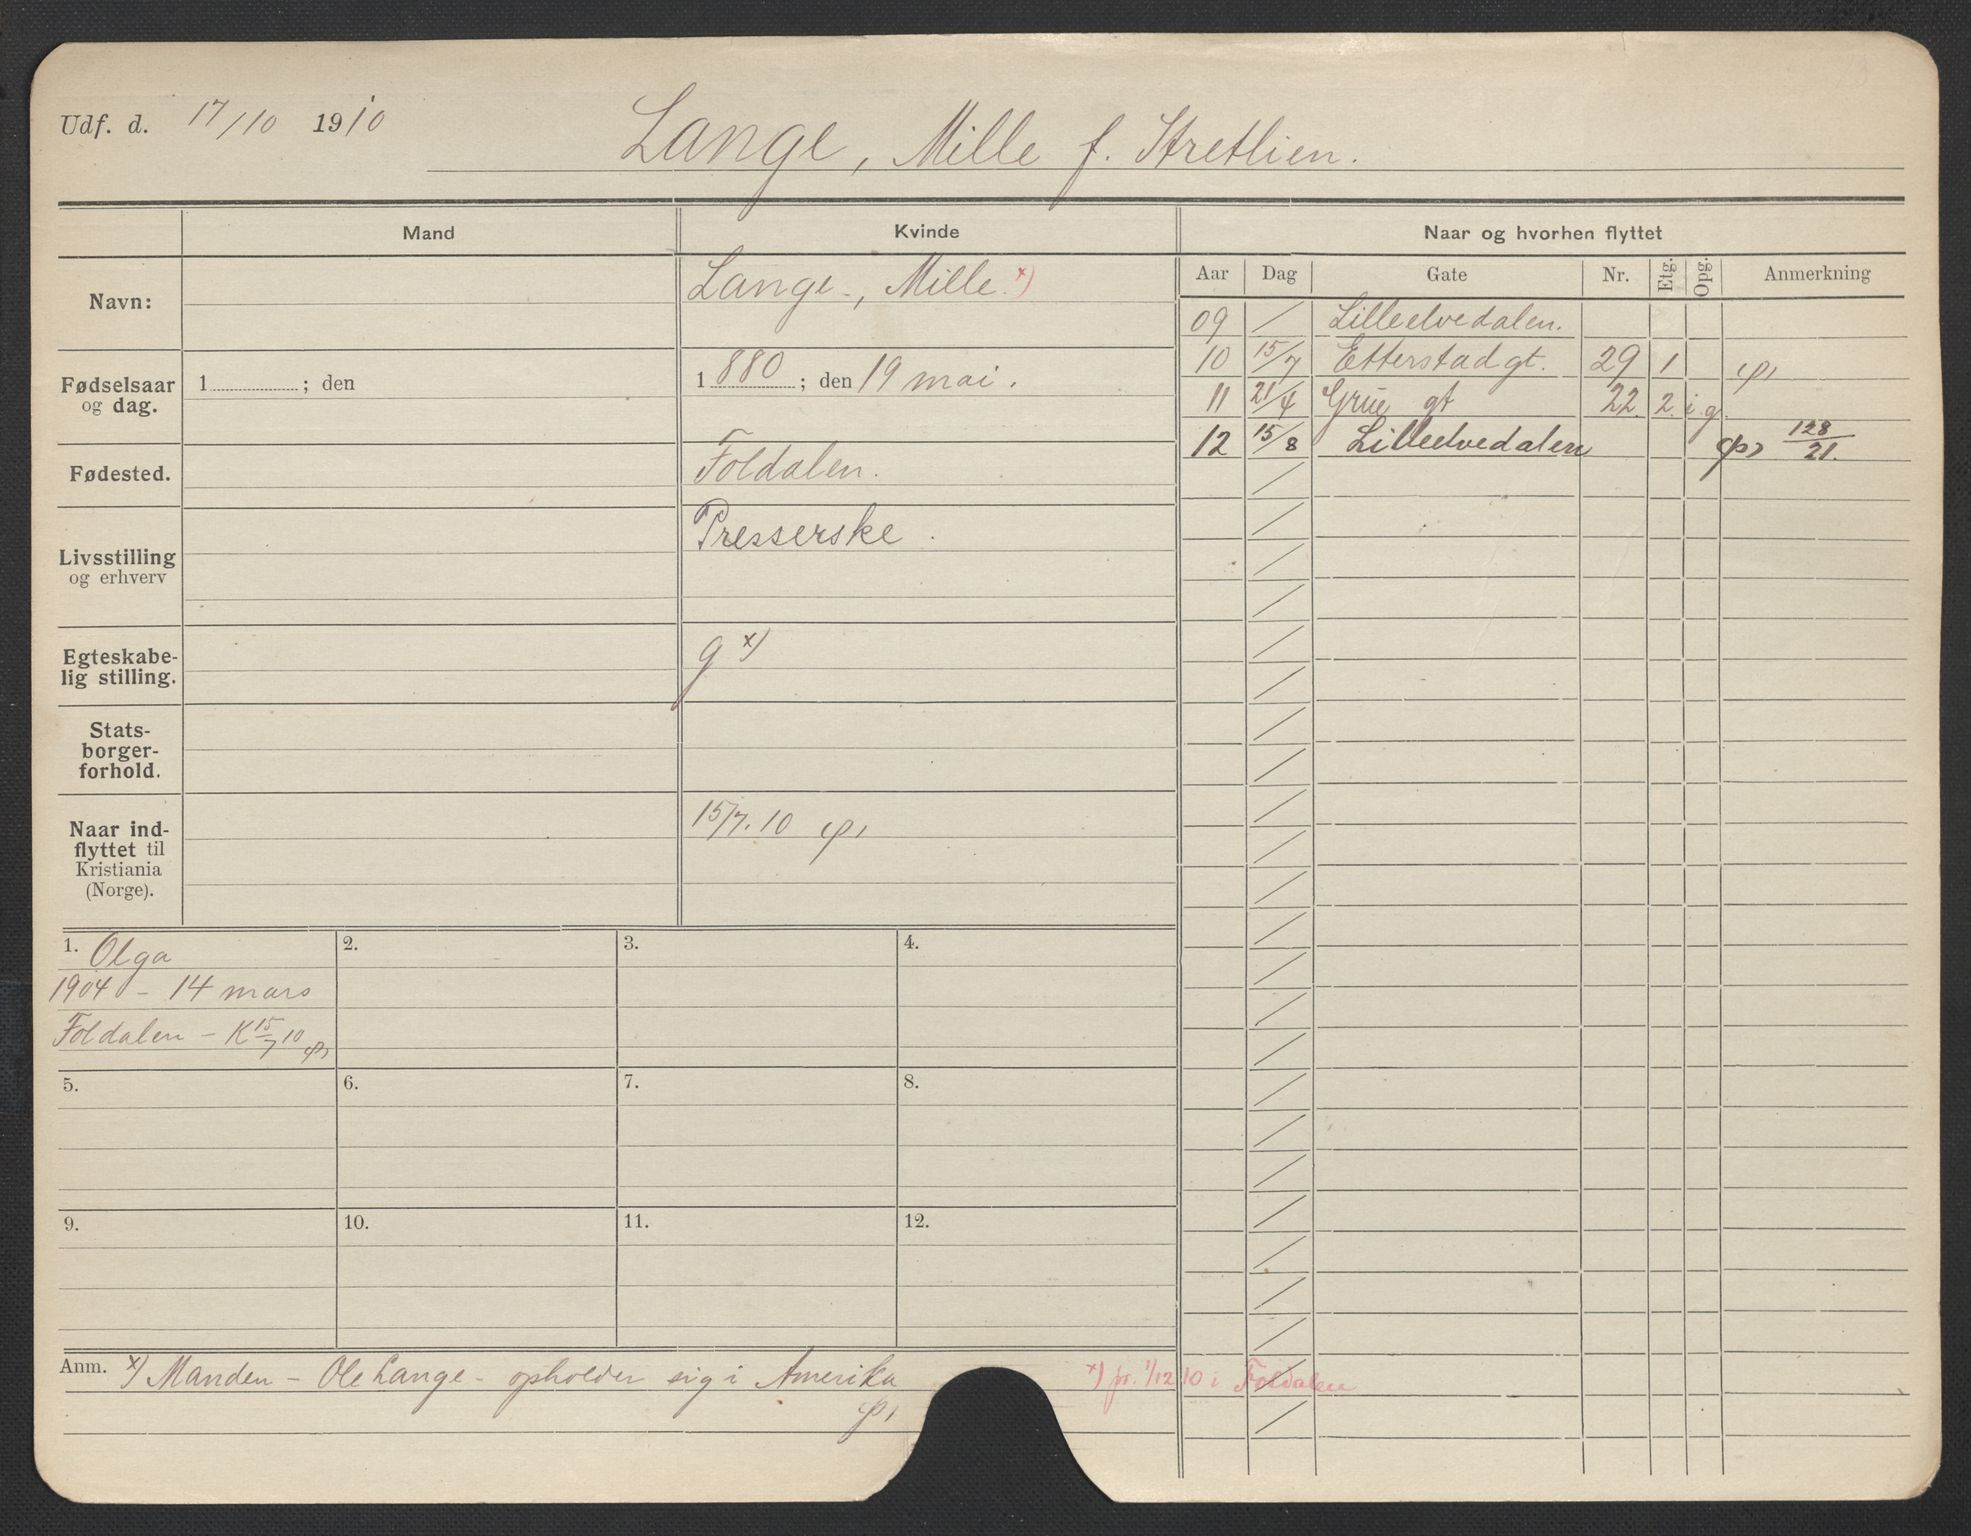 Udf. d. 17/10 1910 Lange, Mille f. Stretlien.
Mand Kvinde Naar og hvorhen flyttet
Aar Dag Gate Nr. Etg. Opg. Anmerkning
Navn: Lange, Mille x)
Fødselsaar og dag. 1 ; den 1880; den 19 mai.
Fødested. Foldalen.
Livsstilling og erhverv Presserske.
Egteskabe-
lig stilling. g x)
Stats-
borger-
forhold.
Naar ind-
flyttet til
Kristiania
(Norge). 15/7. 10
09 / Lilleelvedalen.
10 15/7 Etterstadgt. 29 1
11 21/4 Grüe gt 22. 2. i. g.
12 15/8 Lilleelvedalen 128/21.
1. Olga
1904 - 14 mars
Foldalen - K 15/7 10
2.
3.
4.
5.
6.
7.
8.
9.
10.
11.
12.
Anm. x) Manden - Ole Lange - opholder sig i Amerika
x) pr. 1/12 10 i Foldalen